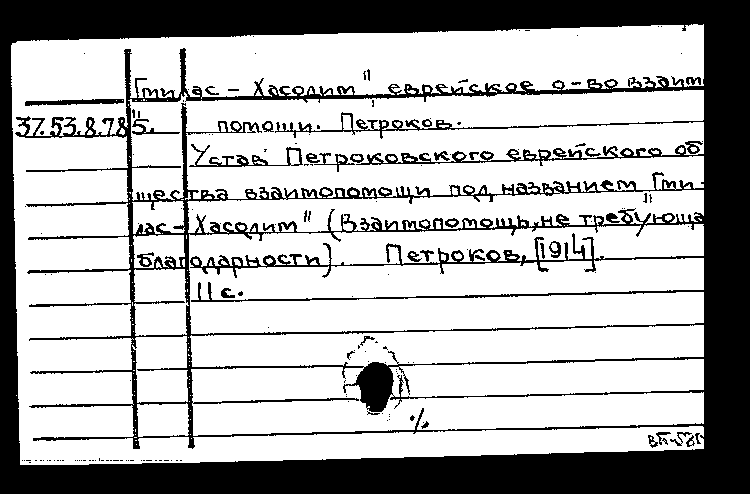 Гмилас – Хасодим", еврейское о-во взаим
37.53.8.785. помощи. Петроков.
Устав Петроковского еврейского об
щества взаимопомощи под названием „Гми-
лас – Хасодим" (Взаимопомощь, не требующа
благодарности). Петроков, [1914].
11 с.